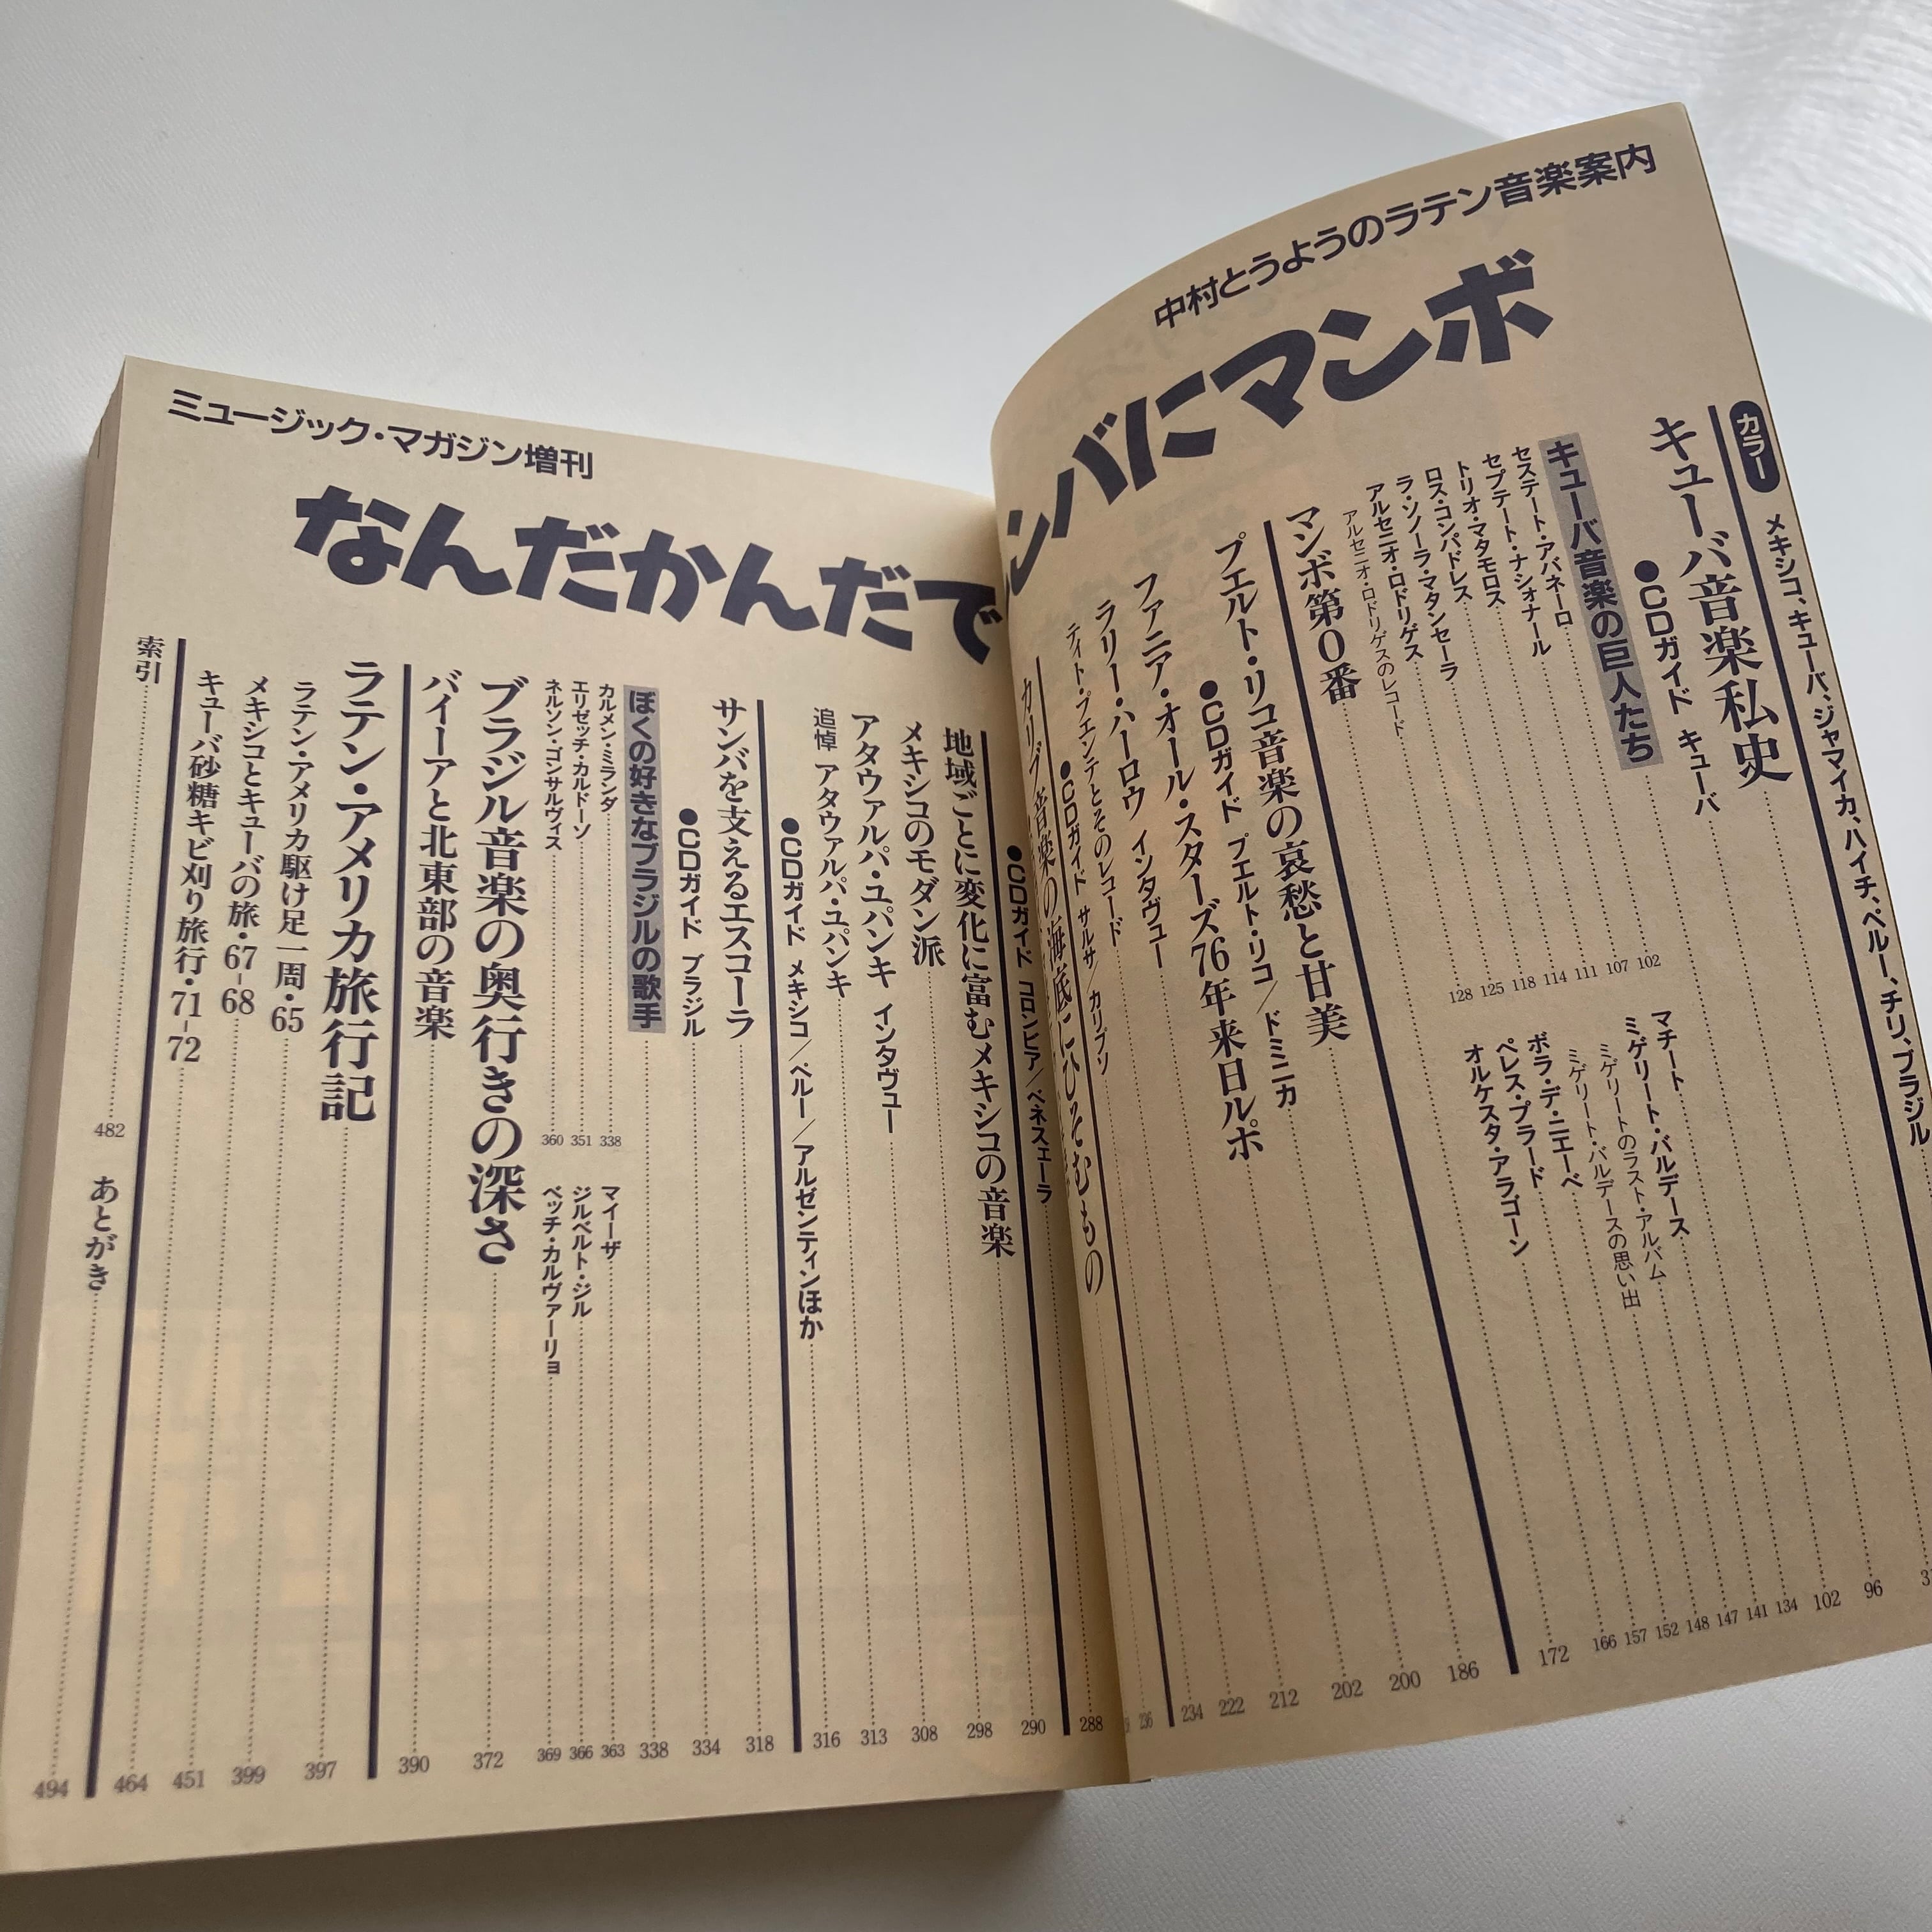 中村とうようのラテン音楽案内
ンバにマンボ
カラー メキシコ、キューバ、ジャマイカ、ハイチ、ペルー、チリ、ブラジル
キューバ音楽私史 96
●CDガイド キューバ 102
キューバ音楽の巨人たち
セステート・アバネーロ 102
セプテート・ナシオナール 107
トリオ・マタモロス 111
ロス・コンパドレス 114
ラ・ソノーラ・マタンセーラ 118
アルセニオ・ロドリゲス 125
アルセニオ・ロドリゲスのレコード 128
マチート 134
ミゲリート・バルデース 141
ミゲリートのラスト・アルバム 147
ミゲリート・バルデースの思い出 148
ボラ・デ・ニエーベ 152
ペレス・プラード 157
オルケスタ・アラゴーン 166
マンボ第0番 172
プエルト・リコ音楽の哀愁と甘美 186
●CDガイド プエルト・リコ／ドミニカ 200
ファニア・オール・スターズ76年来日ルポ 202
ラリー・ハーロウ インタヴュー 212
ティト・プエンテとそのレコード 222
●CDガイド サルサ／カリプソ 234
カリブ音楽の海底にひそむもの 236
ミュージック・マガジン増刊
なんだかんだで
●CDガイド コロンビア／ベネスエーラ 288
地域ごとに変化に富むメキシコの音楽 290
メキシコのモダン派 298
アタウァルパ・ユパンキ インタヴュー 308
追悼 アタウァルパ・ユパンキ 313
●CDガイド メキシコ／ペルー／アルゼンティンほか 316
サンバを支えるエスコーラ 318
●CDガイド ブラジル 334
ぼくの好きなブラジルの歌手 338
カルメン・ミランダ 338
エリゼッチ・カルドーゾ 351
ネルソン・ゴンサルヴィス 360
マイーザ 363
ジルベルト・ジル 366
ベッチ・カルヴァーリョ 369
ブラジル音楽の奥行きの深さ 372
バイーアと北東部の音楽 390
ラテン・アメリカ旅行記 397
ラテン・アメリカ駆け足一周・65 399
メキシコとキューバの旅・67-68 451
キューバ砂糖キビ刈り旅行・71-72 464
索引 482
あとがき 494